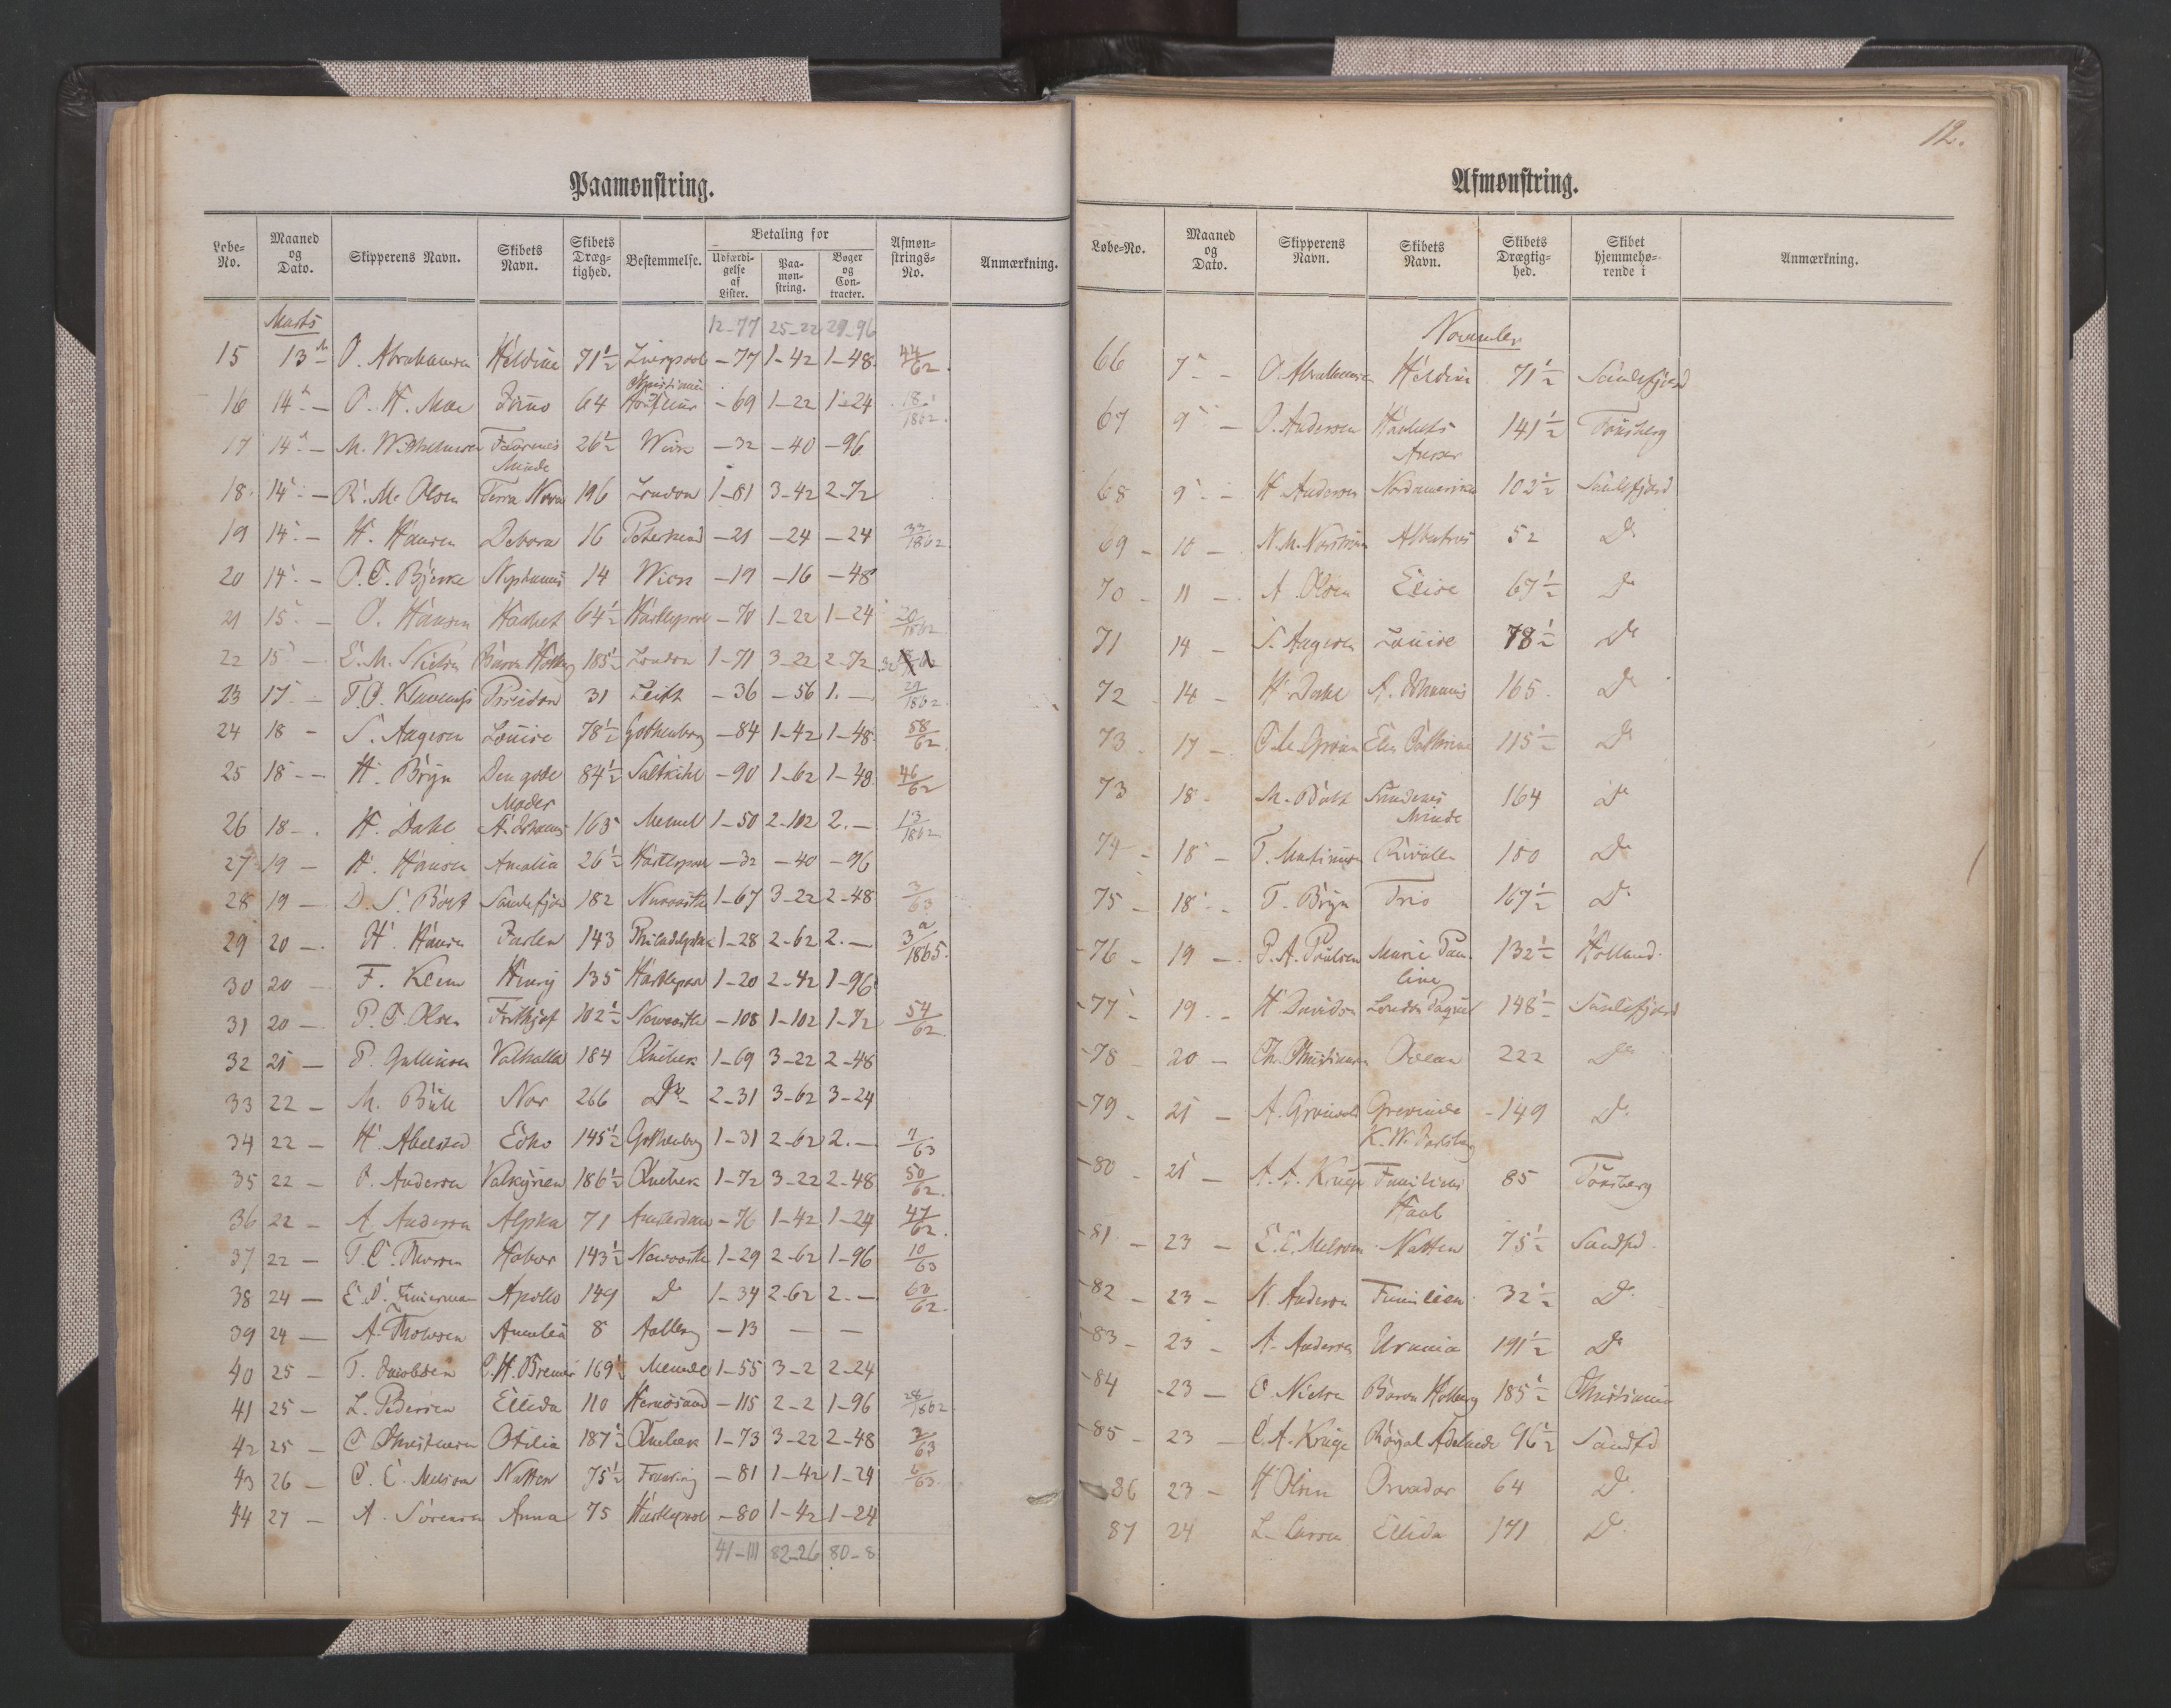 Paamønstring.
Løbe-No. Maaned og Dato. Skipperens Navn. Skibets Navn. Skibets Dræg-tighed. Bestemmelse. Betaling for Udfærdi-gelse af Lister. Paa-møn-string. Bøger og Con-tracter. Afmøn-strings-No. Anmærkning.
Marts 12-77 25-22 29-96
15 13 O. Abrahamsen Heldine 71½ Liverpool -77 1-42 1-48 44/62
16 14 - O. H. Moe Juno 64 -69 1-22 1-24 18/1862
17 14 - M. Wilhelmsen Faderens Minde 26½ Wick -32 -40 -96
18 14 - R. M. Olsen Terra Nova 196 London 1-81 3-42 2-72
19 14 - H. Hansen Debora 16 Peterhead -21 -24 -24 33/1862
20 14 - O. C. Bjerke Nephunus 14 Wick -19 -16 -48
21 15 - O. Hansen Haabet 64½ Hartlepool -70 1-22 1-24 20/1862
22 15 - E. M. Nielsen Baron Holberg 185½ London 1-71 3-22 2-72
23 17 - Poseidon 31 Leith -36 -56 1.- 29/1862
24 18 - S. Aagesen Louise 78½ Gothenborg -84 1-42 1-48 58/62
25 18 - H. Bryn Den gode Moder 84½ -90 1-62 1-48 46/62
26 18 - H. Dahl St. Johannes 165 Memel 1-50 2-102 2.- 13/1862
27 19 - H. Hansen Amalia 26½ Hartlepool -32 -40 -96
28 19 - Sandefjord 182 Newcastle 1-67 3-22 2-48 3/63
29 20 - H. Hansen Jarlen 143 Philadelphia 1-28 2-62 2.- 3a/1865.
30 20 - F. Klem Henry 135 Hartlepool 1-20 2-42 1-96
31 20 - P. C. Olsen Frithjof 102½ Newcastle -108 1-102 1-72 54/62
32 21 - P. Gullicksen Valhalla 184 Quebek 1-69 3-22 2-48
33 22 - M. Bull Nor 266 Do 2-31 3-62 3-24
34 22 - H. Abelsted Echo 145½ Gothenborg 1-31 2-62 2.- 7/63
35 22 - O. Andersen Valkyrien 186½ Quebek 1-72 3-22 2-48 50/62
36 22 - A. Andersen Alpha 71 Amsterdam -76 1-42 1-24 47/62
37 22 - T. C. Thorsen 143½ Newcastle 1-29 2-62 1-96 10/63
38 24 - Apollo 149 Do 1-34 2-62 2.- 63/62
39 24 - A. Thowsen Amalia 8 Aalborg -13 - -
40 25 - T. Jacobsen 169½ Memel 1-55 3-2 2-24
41 25 - L. Pedersen Ellida 110 Hernøsand -115 2-2 1-96 28/1862
42 25 - C. Christensen Otilia 187½ Quebek 1-73 3-22 2-48 2/63
43 26 - C. E. Melsom Natten 75½ -81 1-42 1-24 6/63
44 27 - A. Sørensen Anna 75 Hartlepool -80 1-42 1-24
41-111 82-26 80-8
12.
Afmønstring.
Løbe-No. Maaned og Dato. Skipperens Navn. Skibets Navn. Skibets Drægtig-hed. Skibet hjemmehø-rende i Anmærkning.
November
66 7 - O. Abrahamsen Heldine 71½ Sandefjord
67 9 - O. Andersen Haabets Anker 141½ Tønsberg
68 9 - H. Andersen Nordamerika 102½ Sandefjord
69 - 10 - Albatros 52 Do
70 - 11 - A. Olsen Elise 67½ Do
71 14 - S. Aagesen Louise 78½ Do
72 14 - H. Dahl St. Johannes 165 Do
73 17 - Elen Cathrine 115½ Do
73 18 - Sandens Minde 164 Do
74 - 18 - T. Mathiasen 180 Do
75 - 18 - T. Bryn Trio 167½ Do
76 - 19 - P. A. Poulsen Marie Pauline 132½ Holland
77 19 - H. Davidsen London Paquet 148½ Sandefjord
78 20 - Chr. Christiansen Ocean 222 Do
79 - 21 - A. Grønvold Grevinde K. W. Jarlsberg 149 Do
80 - 21 - A. A. Krüge Familiens Haab 85 Tønsberg
81 - 23 - E. C. Melsom Natten 75½ Sandfd
82 - 23 - N. Andersen Familien 32½ Do
83 - 23 - A. Andersen Urania 191½ Do
84 - 23 - E. Nielsen Baron Holberg 185½ Christiania
85 - 23 - C. A. Krüge Royal Adelaide 96½ Sandfd
86 23 - H. Olsen Orvador 64 Do
87 24 L. Larsen Ellida 171 Do